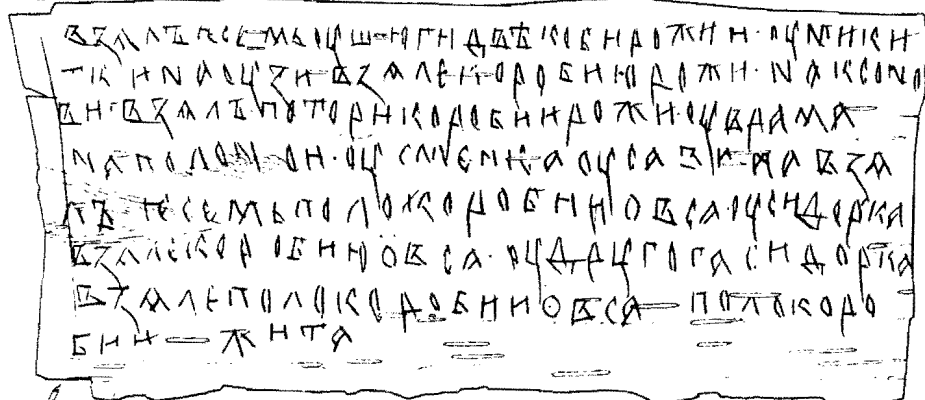 взѧлъ есемь оу ш-юги двѣ коби рожи и · оу мики
тки на оузи взѧле коробию рожи · на ксоно
ви · взѧлъ поторы коробии рожи оу врама
на полом оу сменка оу сави взѧ
лъ есемь полокоробии овса · оу сидорка
взѧле коробию овса · оу другога сидорка
взѧле полокоробии овса полокоро
бии жита